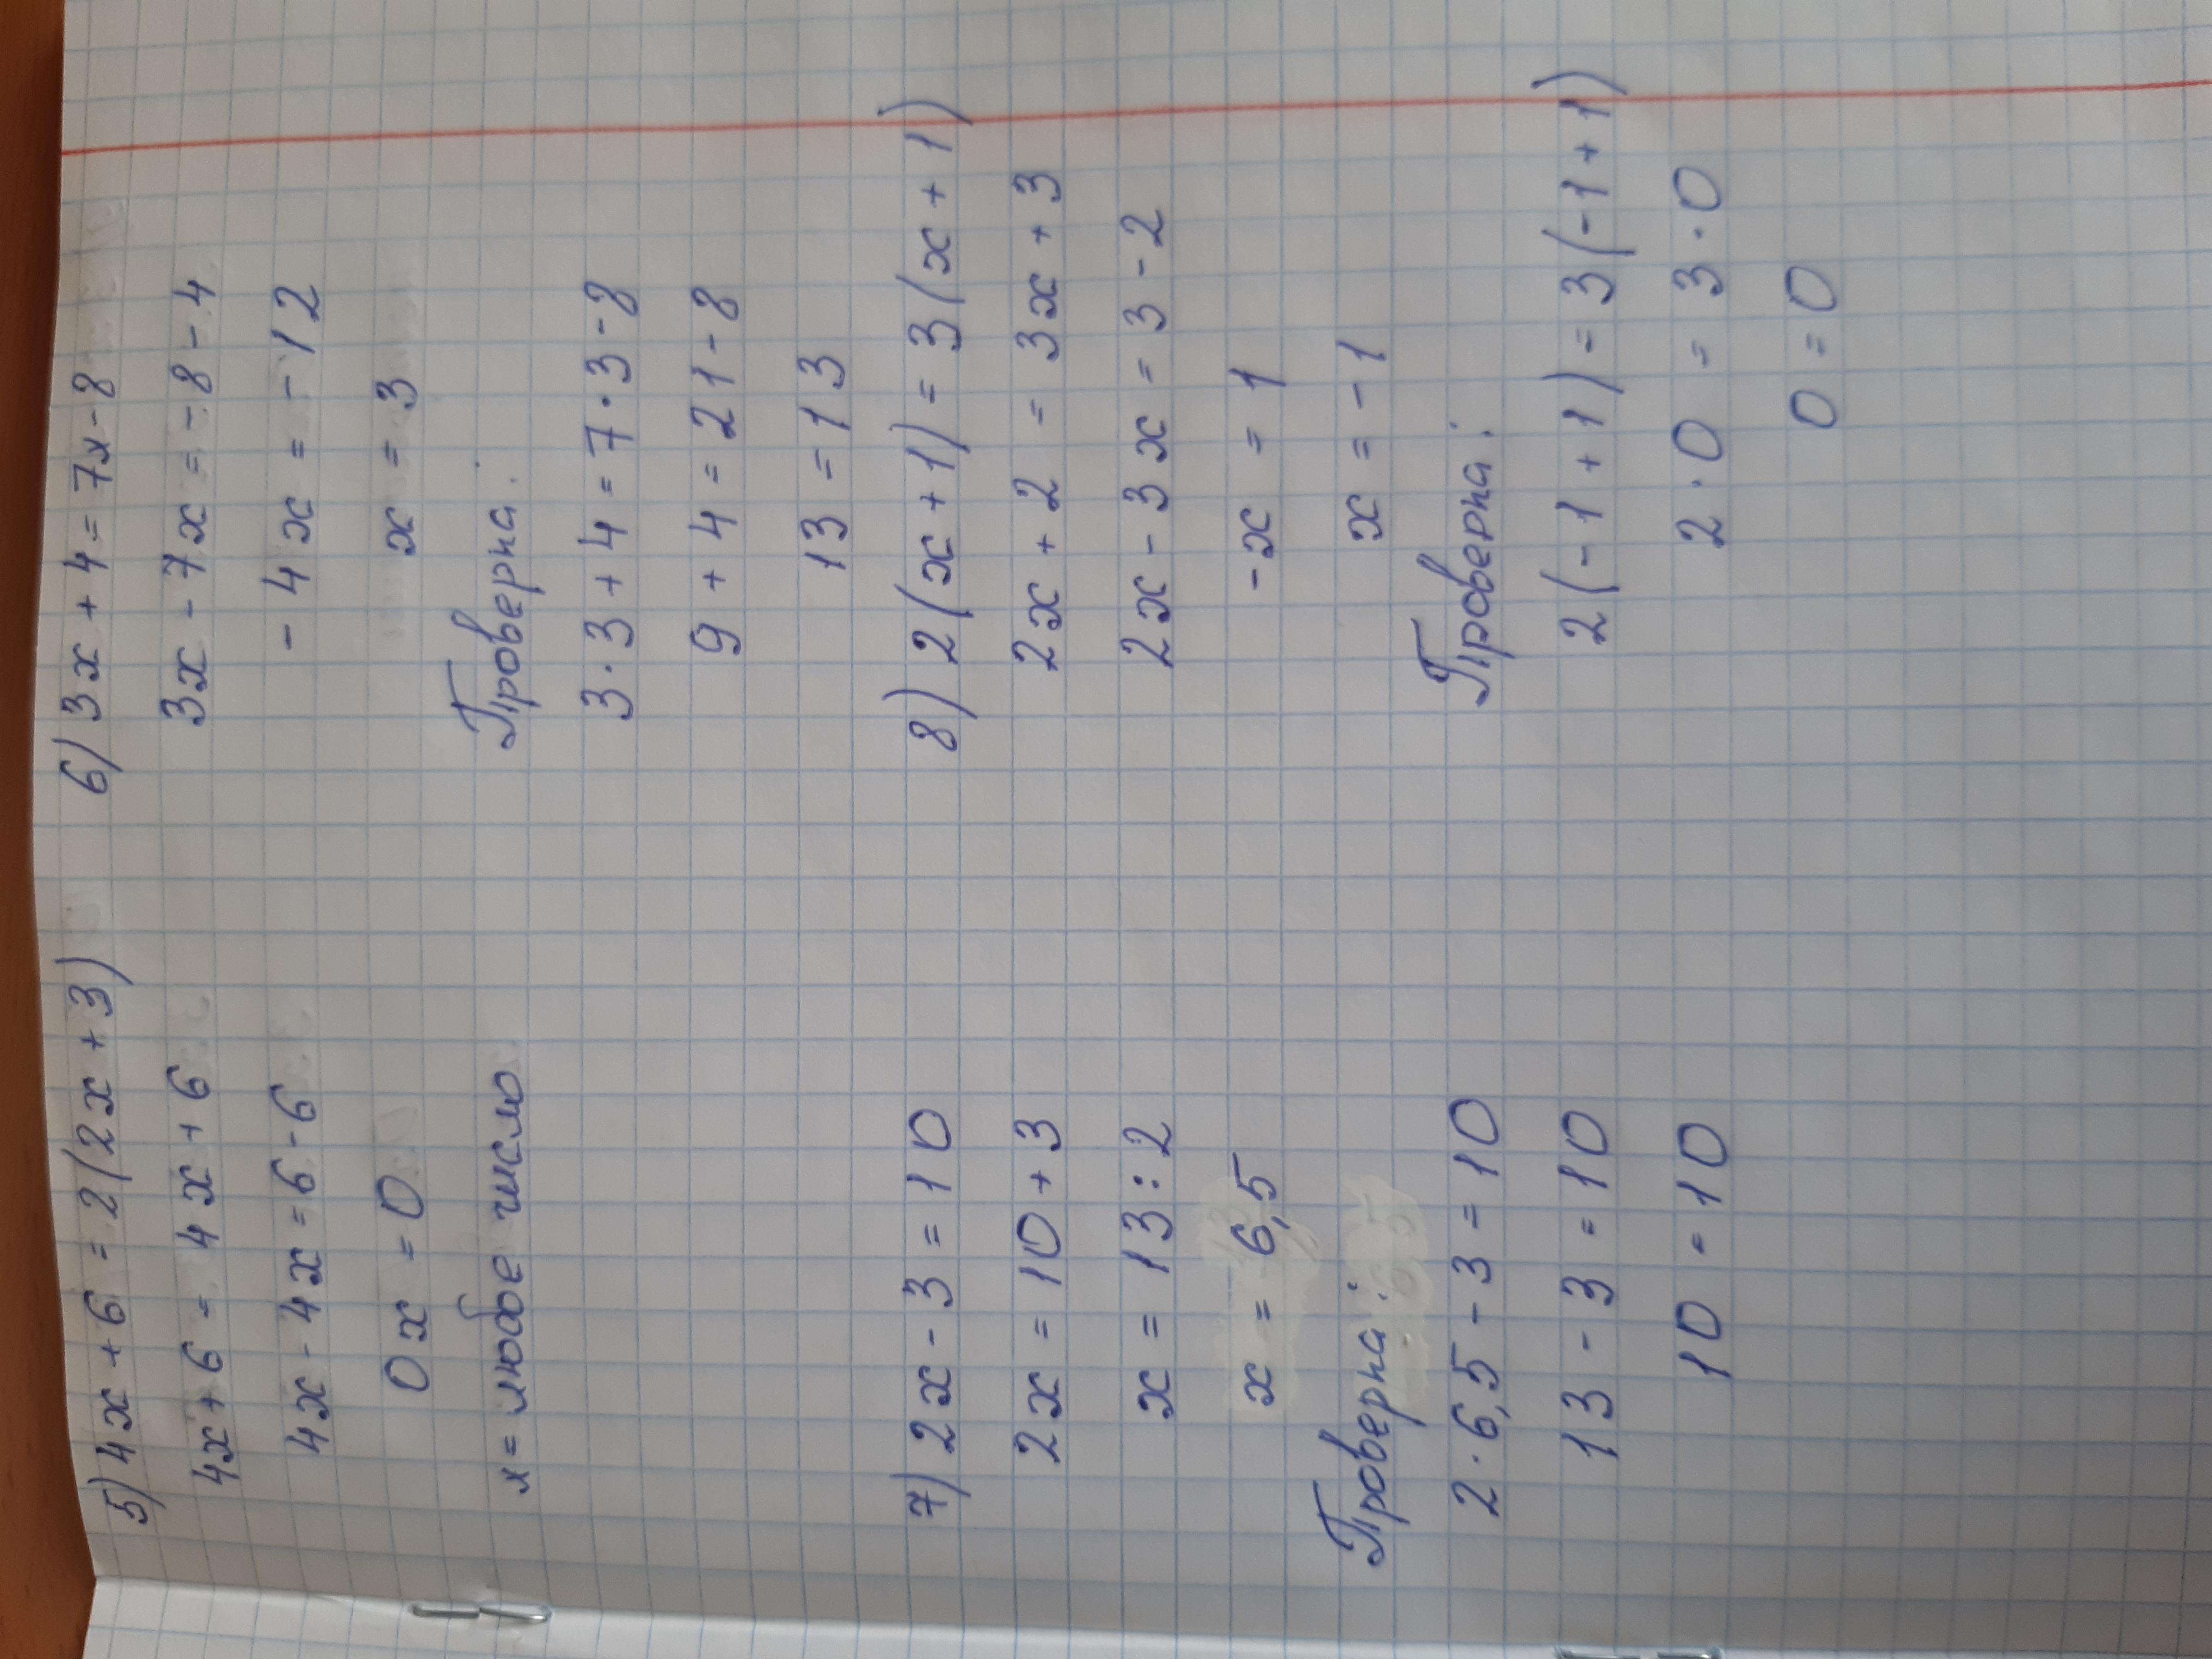 5) 4x + 6 = 2(2x + 3)
4x + 6 = 4x + 6
4x - 4x = 6 - 6
0x = 0
x = любое число
6) 3x + 4 = 7x - 8
3x - 7x = - 8 - 4
- 4x = - 12
x = 3
Проверка:
3 · 3 + 4 = 7 · 3 - 8
9 + 4 = 21 - 8
13 = 13
7) 2x - 3 = 10
2x = 10 + 3
x = 13 : 2
x = 6,5
Проверка:
2 · 6,5 - 3 = 10
13 - 3 = 10
10 = 10
8) 2(x + 1) = 3(x + 1)
2x + 2 = 3x + 3
2x - 3x = 3 - 2
-x = 1
x = -1
Проверка:
2(-1 + 1) = 3(-1 + 1)
2 · 0 = 3 · 0
0 = 0